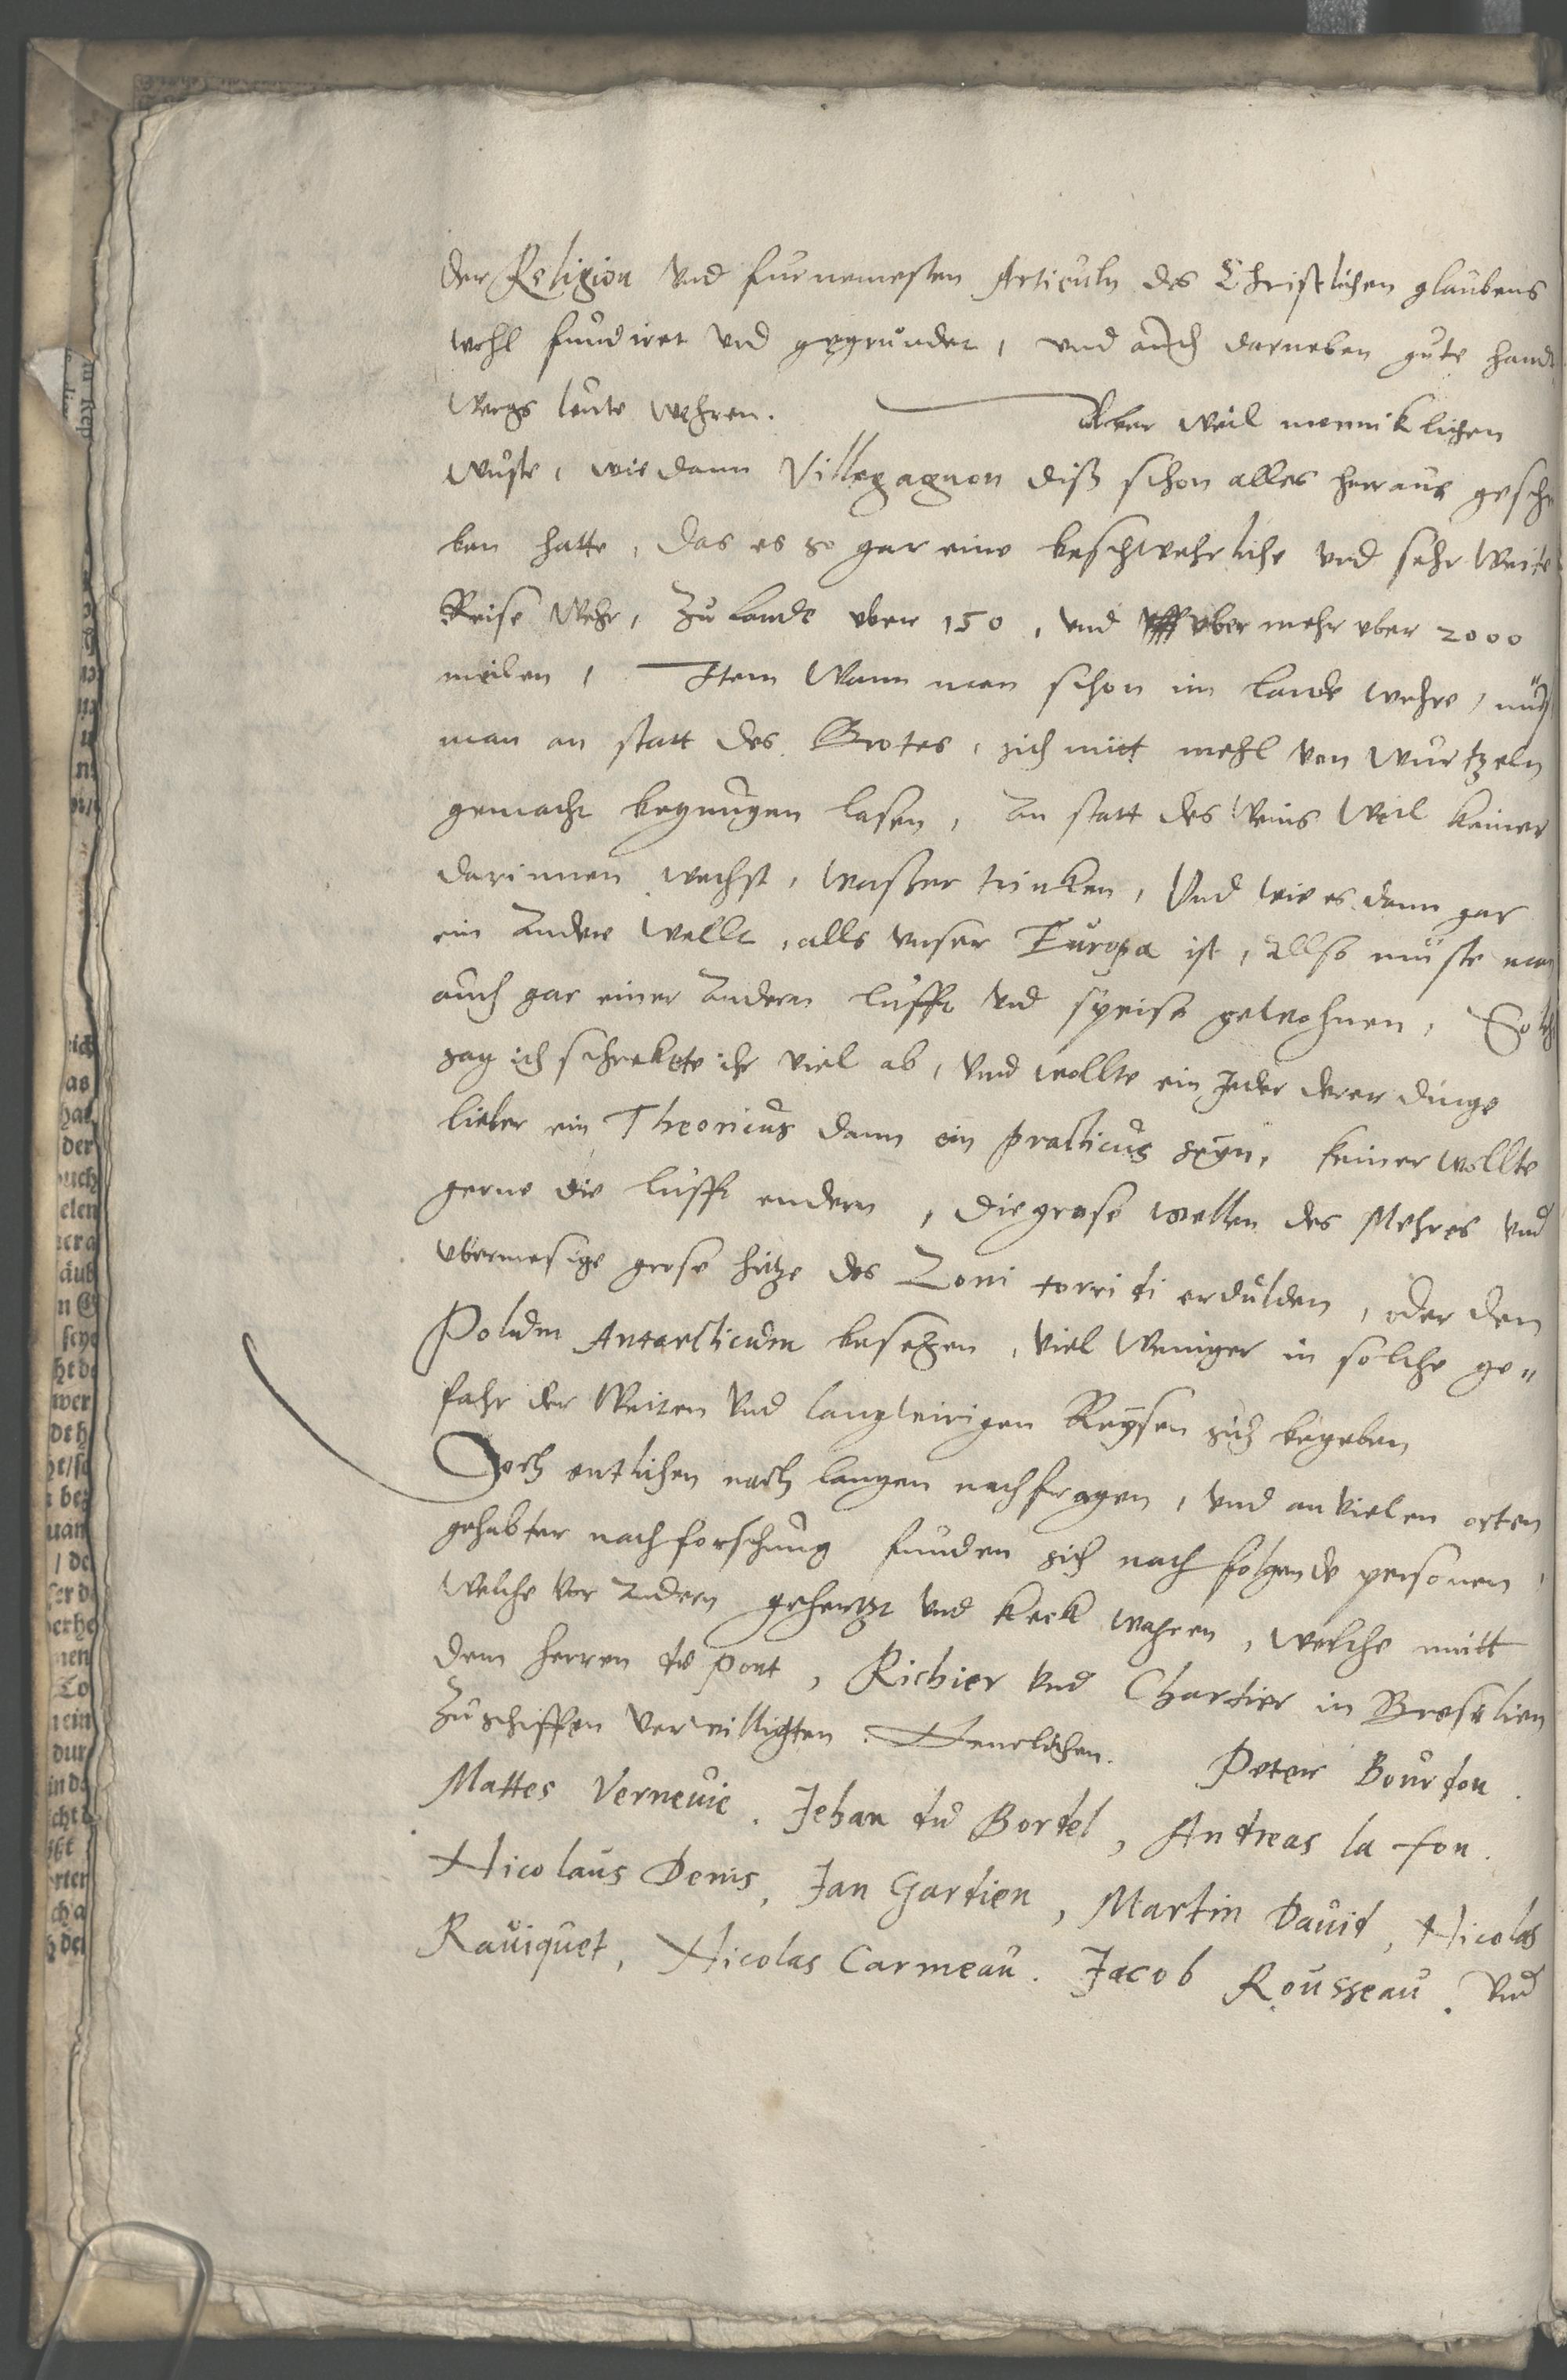 der Religion vnd furnemesten Articuln des Christlichen glaubens
wohl fundiret vnd gegrundet, vnd auch darneben gute handt
wergs leute wehren. Aber weil menniklichen
wuste, wie dann Villegagnon diß schon alles herraus geschr
ben hatte, das es so gar eine beschwehrliche vnd sehr weite
Reise wehr, zu lande vber 150, vnd vber mehr vber 2000
meilen, Item wann man schon im lande wehre, mus
man an statt des Brotes, sich mitt mehl von wurtzeln
gemacht begnugen lasen, an statt des weins weil keiner
darinnen wechst, waßer trinken, Vnd wie es dann gar
ein andere wellt, alls vnser Europa ist, allso muste man
auch gar einer andern lufft vnd speise gewohnen, Solch
sag ich schrekete ihr viel ab, vnd wollte ein Jeder derer dinge
lieber ein Theoricus dann ein practicus seyn, keiner wollte
gerne die lufft endern, die grose wellen des Mehres vnd
vbermesige grose hitze des Zoni torridi erdulden, oder den
Polum Antarcticum besehen, viel weniger in solche ge„
fahr der weiten vnd langwirigen Reysen sich begeben
Doch entlichen nach langen nachfragen, vnd an vielen orten
gehabter nachforschung funden sich nachfolgende personen,
welche vor andern gehertzt vnd keck wahren, welche mitt
dem herren du pont, Richier vnd Chartier in Bresilien
zu schiffen verwilligten. Nemlichen. Peter Bourdon.
Mattes Verneuie. Jehan du Bordel, Andreas la fon.
Nicolaus Denis, Jan Gardien, Martin Dauid, Nicolas
Rauiquet, Nicolas Carmeau. Jacob Rousseau. vnd